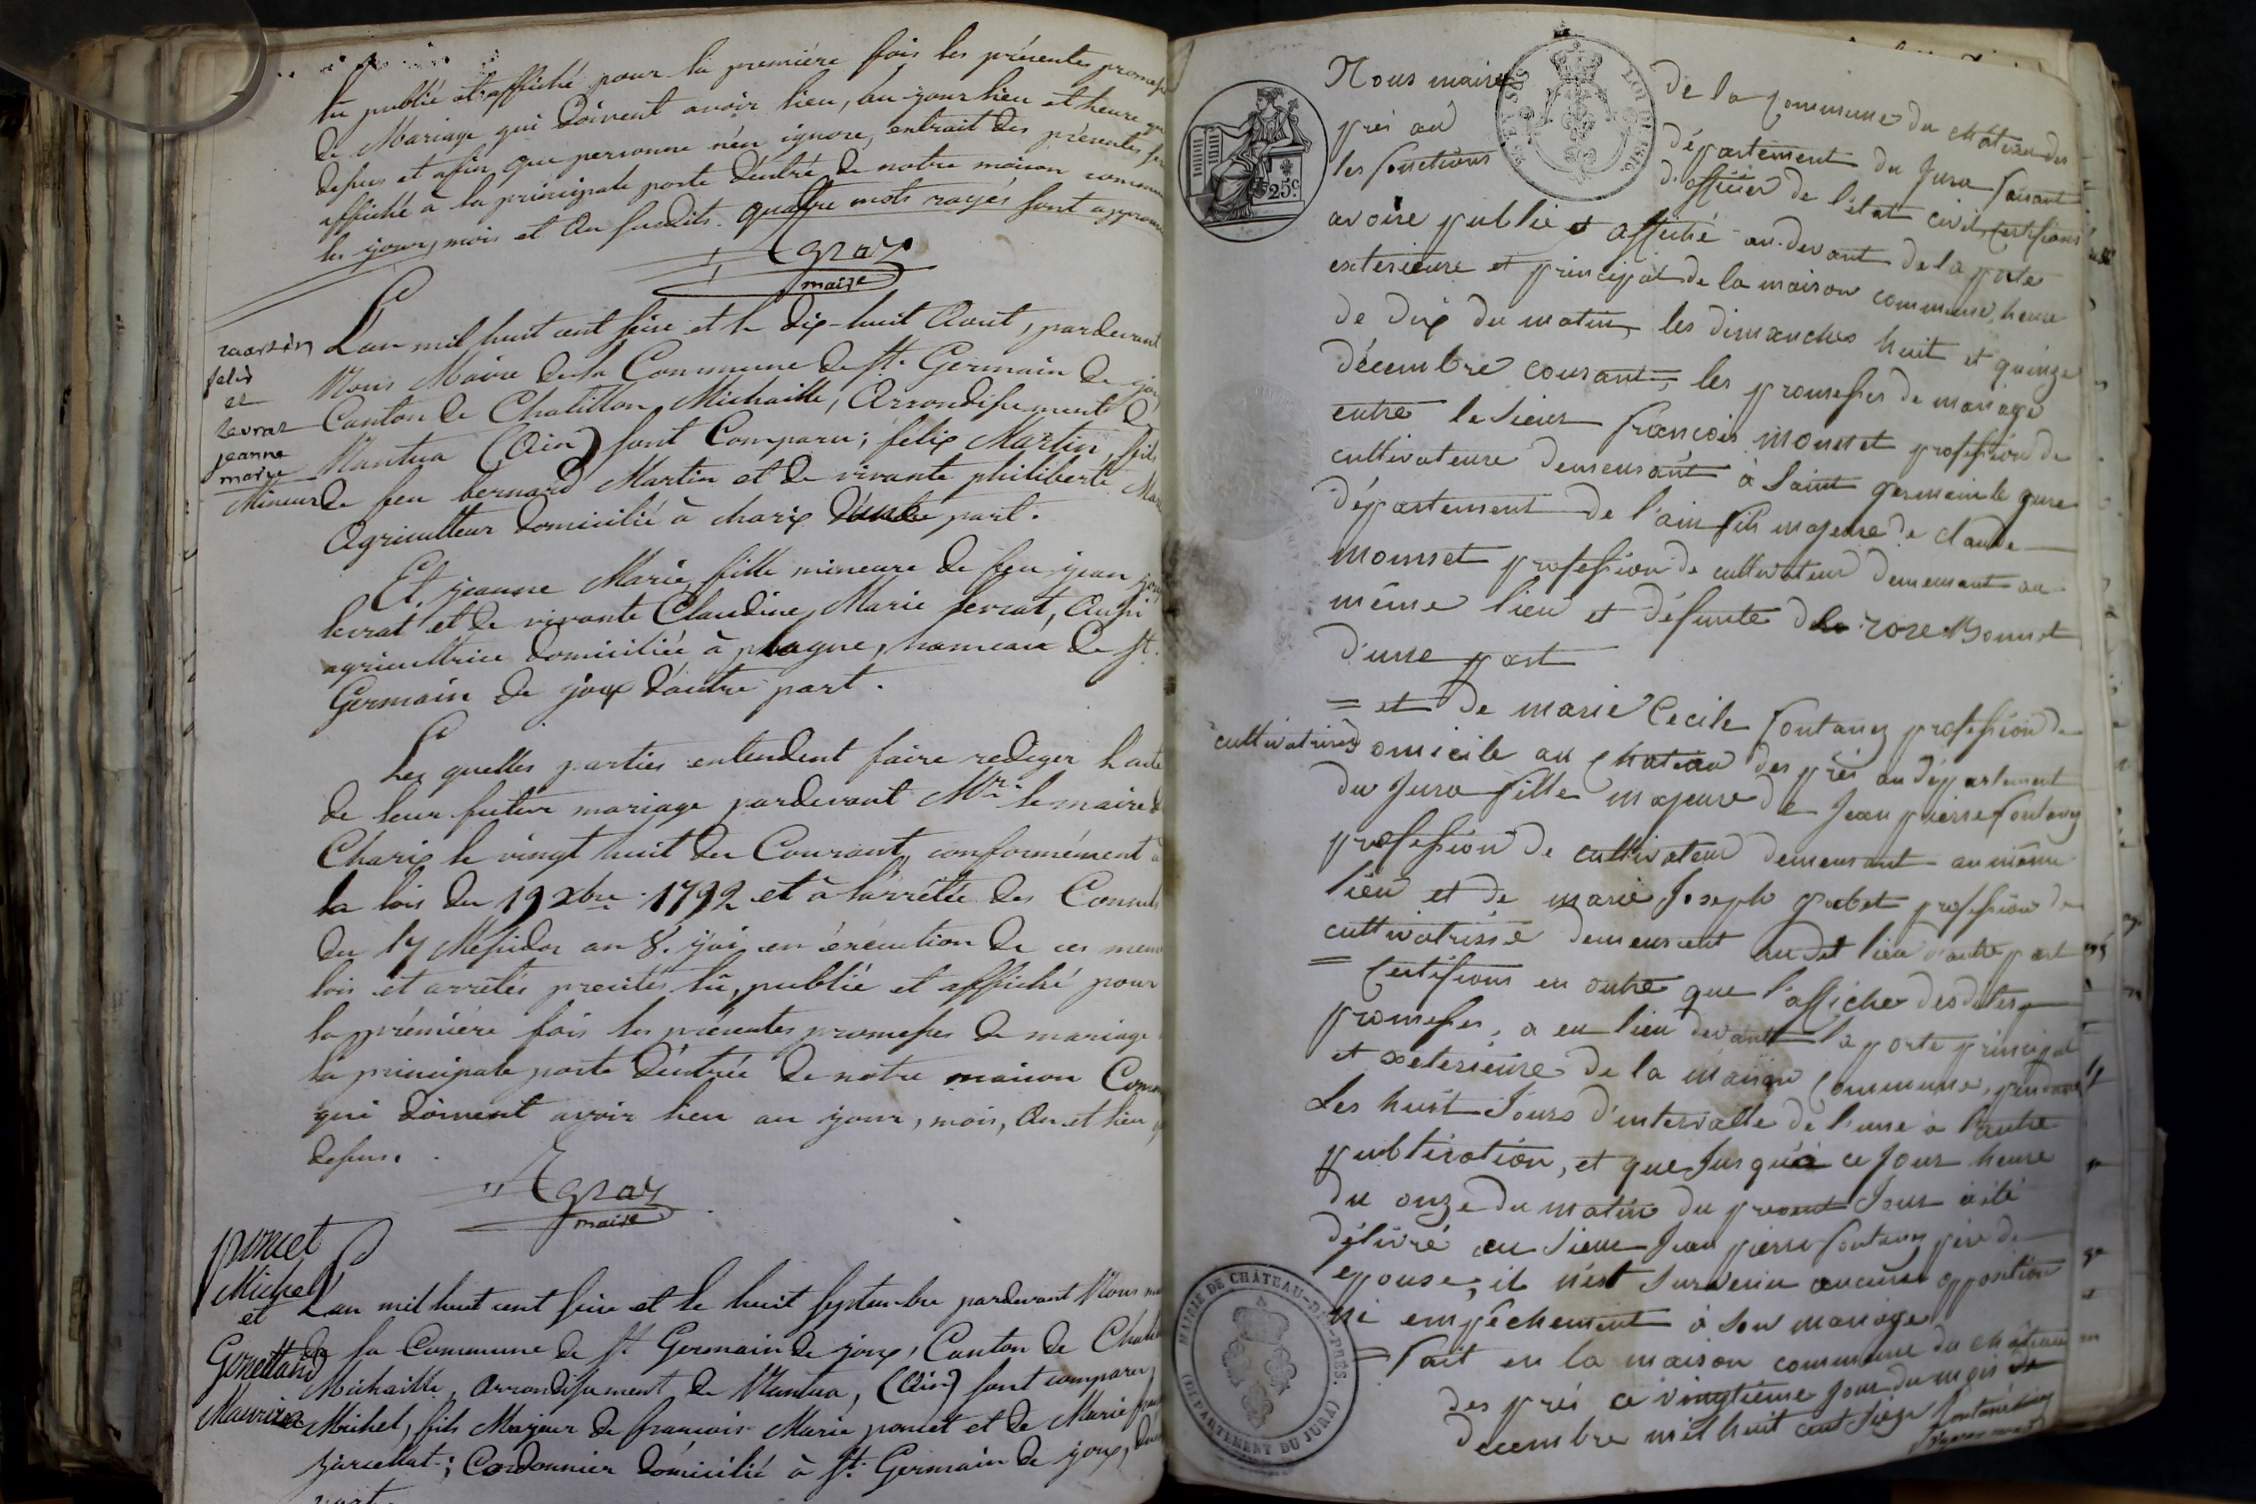 lu publié et affiché pour la première fois les présentes promesses
de Mariage qui doivent avoir lieu, au jour lieu et heure que
dessus et afin que personne n'en ignore, extrait des présentes sera
affiché à la principale porte d'entrée de notre maison commune
les jour, mois et an susdits. quatre mots rayés sont approuvés
Agraz
maire
martin
felix
et
Levrat
jeanne
marie
Mineurs
L'an mil huit cent seize et le dix-huit Aout, pardevant
Nous Maire de la Commune de St. Germain de joux
Canton de Chatillon Michaille, Arrondissement de
Nantua (Ain) sont Comparu; felix Martin, fils
de feu bernard Martin et de vivante philiberte Mar
Agriculteur domicilié à charix d'une part.
Et jeanne Marie, fille mineure de feu jean jo
levrat et de vivante Claudine Marie levrat, Aussi
agricultrice domiciliée à plagne, hameau de St.
Germain de joux d'autre part.
Les quelles parties entendent faire rediger l'acte
de leur futur mariage pardevant Mr. le maire de
Charix le vingt huit du Courant, conformément à
la lois du 19 xbre 1792 et à l'arrêtée des Consuls
du 17 Messidor an 8. j'ai en éxécution de ces memes
lois et arrêtés précités lû, publié et affiché pour
la première fois les présentes promesses de mariage
la principale porte d'entrée de notre maison Comm
qui doivent avoir lieu au jour, mois, An et lieu que
dessus.
Agraz
maire
poncet
Michel
et
Gonettand
Maurizia
L'an mil huit cent seize et le huit septembre pardevant Nous maire
de la Commune de St Germain de joux, Canton de Chatillon
Michaille, arrondissement de Nantua, (Ain) sont comparu,
Michel, fils Majeur de francois Marie poncet et de Marie
jarcellat; Cordonnier domicilié à St. Germain de joux, d'une
part
Nous maire de la Commune du château des
près au département du Jura faisant
les fonctions d'officier de l'état civil, certifions
25c.
LOI DE 1816
avoire publié et affiché au-devant de la porte
exterieure et principal de la maison commune, heure
de dix du matin, les dimanches huit et quinze
décembre courant, les promesses de mariage
entre le sieur françois mounet profession de
cultivateure demeurant à Saint germain le joux
département de l'ain fils majeure de claude
mounet profession de cultivateur demeurant au
même lieu et défunte de rose Bonnet
d'une part
= et de marie Cecile fontanez profession de
cultivatrice domicile au château des près au département
du Jura fille majeure de Jean pierre fontanez
profession de cultivateur demeurant au même
lieu et de marie Joseph grebet profession de
cultivatrisse demeurant audit lieu d'autre part
= Certifions en outre que l'affiche desdites
promesses, a eu lieu devant la porte principal
et exterieure de la maison commune, pendant
Les huit Jours d'intervalle de l'une à l'autre
publication, et que Jusqu'à ce Jour heure
du onze du matin du present Jour à été
délivré au sieur Jean pierre fontanez père de
epouse, il n'est survenu aucune opposition
ni empêchement à son mariage
= fait en la maison commune du château
des près ce vingtième jour du mois de
decembre mil huit cent seize
MAIRIE DE CHÂTEAU-DES-PRÉS.
(DÉPARTEMENT DU JURA)